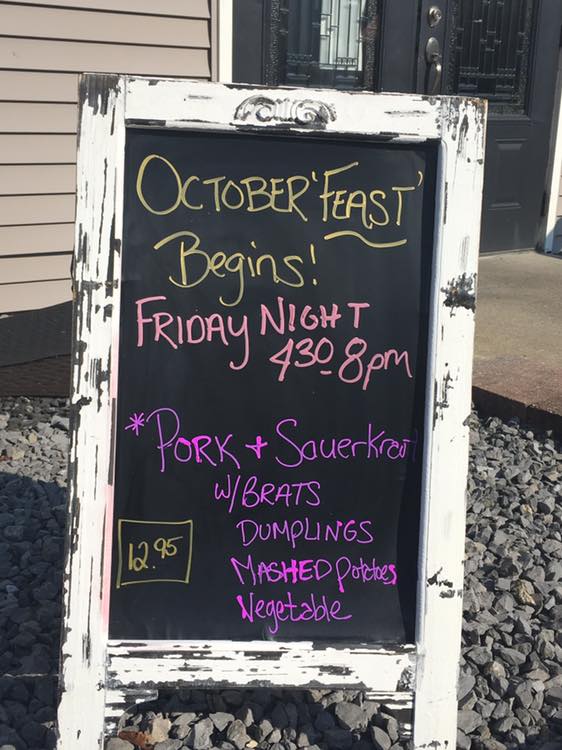 OCTOBER 'FEAST'
Begins!
FRIDAY NIGHT
430-8pm
*PORK + Sauerkraut
W/BRATS
DUMPLINGS
12.95
MASHED Potatoes
Vegetable